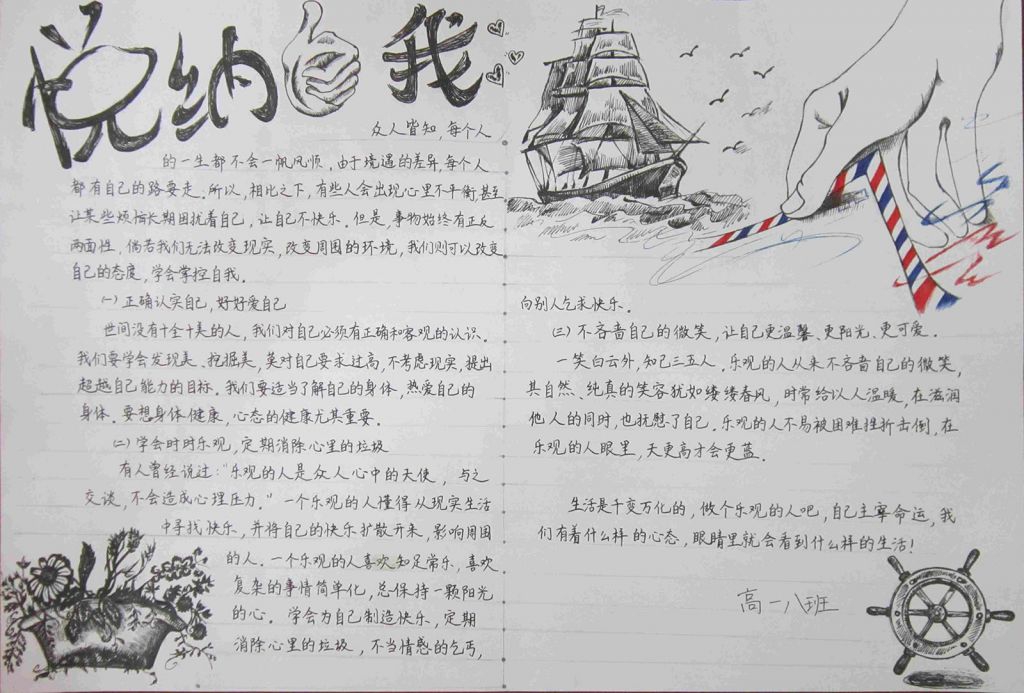 悦纳自我
众人皆知，每个人
的一生都不会一帆风顺，由于境遇的差异，每个人
都有自己的路要走。所以，相比之下，有些人会出现心里不平衡，甚至
让某些烦恼长期困扰着自己，让自己不快乐。但是，事物始终有正反
两面性，倘若我们无法改变现实，改变周围的环境，我们则可以改变
自己的态度，学会掌控自我。
(一) 正确认实自己，好好爱自己
世间没有十全十美的人，我们对自己必须有正确和客观的认识。
我们要学会发现美、挖掘美，莫对自己要求过高，不考虑现实，提出
超越自己能力的目标。我们要适当了解自己的身体，热爱自己的
身体。要想身体健康，心态的健康尤其重要。
(二) 学会时时乐观，定期消除心里的垃圾
有人曾经说过："乐观的人是众人心中的天使，与之
交谈，不会造成心理压力。"一个乐观的人懂得从现实生活
中寻找快乐，并将自己的快乐扩散开来，影响周围
的人。一个乐观的人喜欢知足常乐，喜欢
复杂的事情简单化，总保持一颗阳光
的心。学会为自己制造快乐，定期
消除心里的垃圾，不当情感的乞丐，
向别人乞求快乐。
(三) 不吝啬自己的微笑，让自己更温馨、更阳光、更可爱。
一笑白云外，知己三五人。乐观的人从来不吝啬自己的微笑，
其自然、纯真的笑容犹如缕缕春风，时常给以人温暖，在滋润
他人的同时，也抚慰了自己。乐观的人不易被困难挫折击倒，在
乐观的人眼里，天更高才会更蓝。
生活是千变万化的，做个乐观的人吧，自己主宰命运，我
们有着什么样的心态，眼睛里就会看到什么样的生活！
高一八班